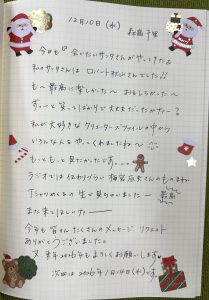 12月10日(水)
森高千里
今日も『会いたいサンタさんがやってきたよ
私のサンタさんは ロバート秋山さんでした!!
も〜最高に楽しかった〜 おもしろかった〜
ずぅーと笑いっぱなしで大丈夫だったかナー?
私が大好きなクリエーターズファイルの中から
いろんな人をやってくれましたね〜
もっともっと見たかったです…
ラジオでは伝わりづらい 梅宮辰夫さんのものまね
Tシャツめくるの 生で見ちゃいました― 最高
また来てほしいナ―
今年も皆さん たくさんのメッセージ リクエスト
ありがとうございました
又 来年2026年もよろしくお願いします
次回は2026年1月14日(水)です